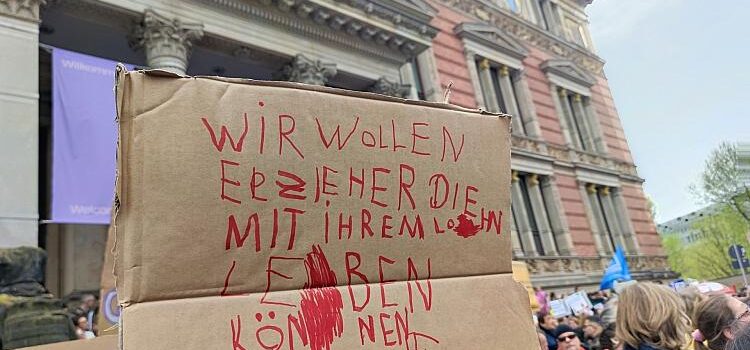 Willkomm
Welcom
WiR WOLLEN
ERZIEHER DIE
MIT iHREM LOHN
LEBEN
KÖNNEN